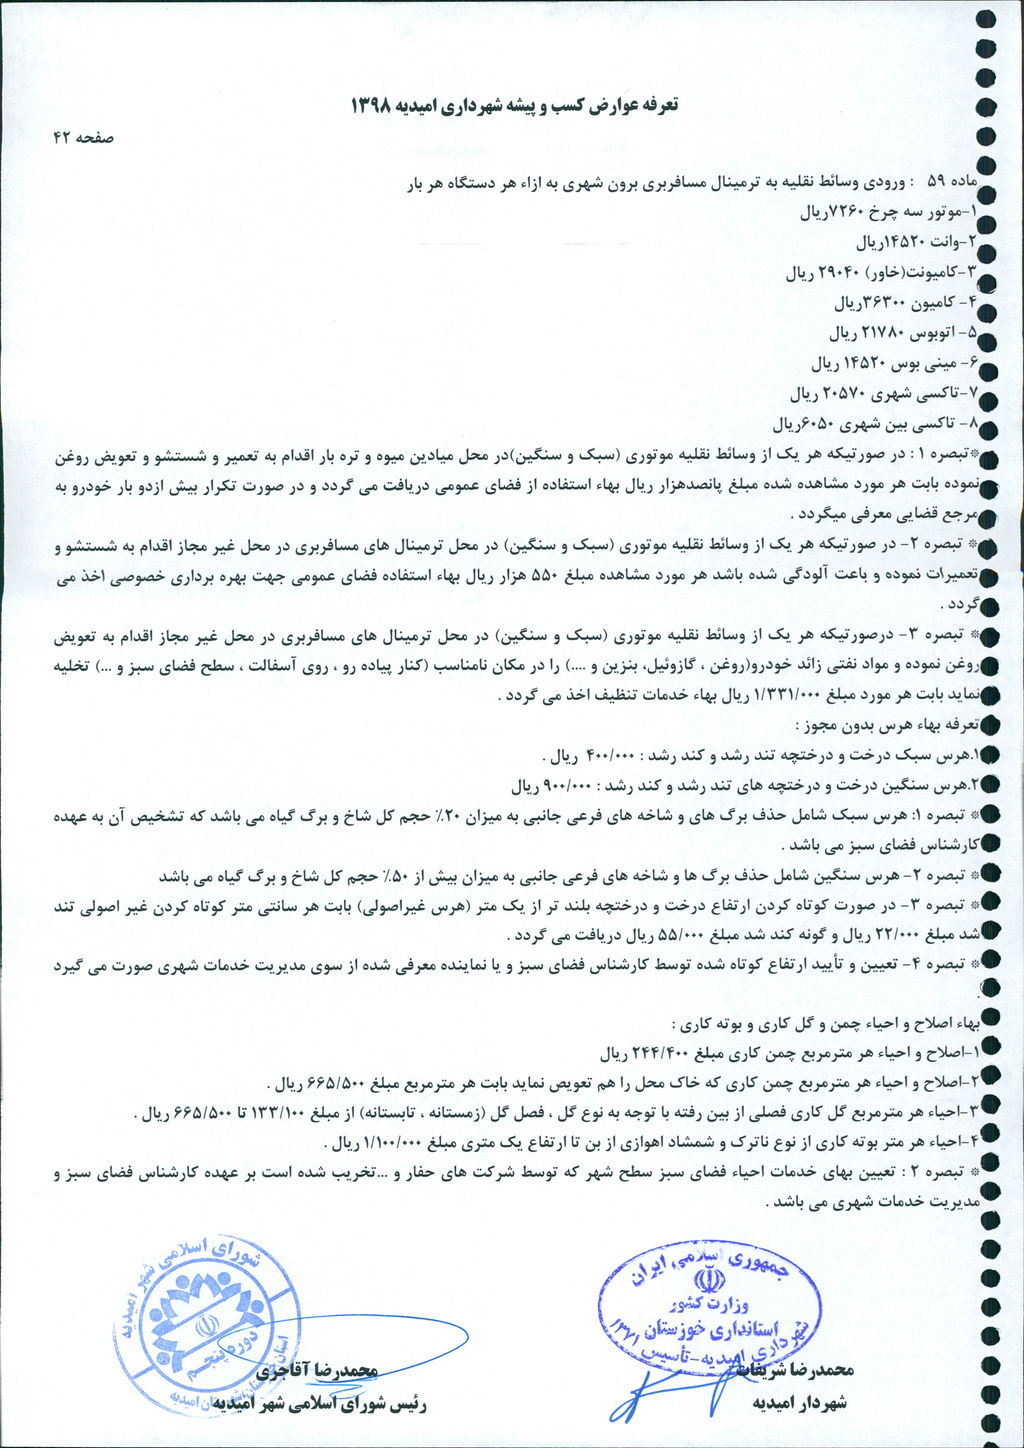 تعرفه عوارض کسب و پیشه شهرداری امیدیه ۱۳۹۸
صفحه ۴۲
ماده ۵۹ : ورودی وسائط نقلیه به ترمینال مسافربری برون شهری به ازاء هر دستگاه هر بار
۱-موتور سه چرخ ۷۲۶۰ریال
۲-وانت ۱۴۵۲۰ریال
۳-کامیونت(خاور) ۲۹۰۴۰ ریال
۴- کامیون ۳۶۳۰۰ریال
۵- اتوبوس ۲۱۷۸۰ ریال
۶- مینی بوس ۱۴۵۲۰ ریال
۷-تاکسی شهری ۲۰۵۷۰ ریال
۸- تاکسی بین شهری ۶۰۵۰ریال
*تبصره ۱ : در صورتیکه هر یک از وسائط نقلیه موتوری (سبک و سنگین)در محل میادین میوه و تره بار اقدام به تعمیر و شستشو و تعویض روغن
نموده بابت هر مورد مشاهده شده مبلغ پانصدهزار ریال بهاء استفاده از فضای عمومی دریافت می گردد و در صورت تکرار بیش ازدو بار خودرو به
مرجع قضایی معرفی میگردد .
* تبصره ۲- در صورتیکه هر یک از وسائط نقلیه موتوری (سبک و سنگین) در محل ترمینال های مسافربری در محل غیر مجاز اقدام به شستشو و
تعمیرات نموده و باعث آلودگی شده باشد هر مورد مشاهده مبلغ ۵۵۰ هزار ریال بهاء استفاده فضای عمومی جهت بهره برداری خصوصی اخذ می
گردد .
* تبصره ۳- درصورتیکه هر یک از وسائط نقلیه موتوری (سبک و سنگین) در محل ترمینال های مسافربری در محل غیر مجاز اقدام به تعویض
روغن نموده و مواد نفتی زائد خودرو(روغن ، گازوئیل، بنزین و ....) را در مکان نامناسب (کنار پیاده رو ، روی آسفالت ، سطح فضای سبز و ...) تخلیه
نماید بابت هر مورد مبلغ ۱/۳۳۱/۰۰۰ ریال بهاء خدمات تنظیف اخذ می گردد .
تعرفه بهاء هرس بدون مجوز :
۱.هرس سبک درخت و درختچه تند رشد و کند رشد : ۴۰۰/۰۰۰ ریال .
۲.هرس سنگین درخت و درختچه های تند رشد و کند رشد : ۹۰۰/۰۰۰ ریال
* تبصره ۱: هرس سبک شامل حذف برگ های و شاخه های فرعی جانبی به میزان ۲۰٪ حجم کل شاخ و برگ گیاه می باشد که تشخیص آن به عهده
کارشناس فضای سبز می باشد .
* تبصره ۲- هرس سنگین شامل حذف برگ ها و شاخه های فرعی جانبی به میزان بیش از ۵۰٪ حجم کل شاخ و برگ گیاه می باشد
* تبصره ۳- در صورت کوتاه کردن ارتفاع درخت و درختچه بلند تر از یک متر (هرس غیراصولی) بابت هر سانتی متر کوتاه کردن غیر اصولی تند
شد مبلغ ۲۲/۰۰۰ ریال و گونه کند شد مبلغ ۵۵/۰۰۰ ریال دریافت می گردد .
* تبصره ۴- تعیین و تأیید ارتفاع کوتاه شده توسط کارشناس فضای سبز و یا نماینده معرفی شده از سوی مدیریت خدمات شهری صورت می گیرد
.
بهاء اصلاح و احیاء چمن و گل کاری و بوته کاری :
۱-اصلاح و احیاء هر مترمربع چمن کاری مبلغ ۲۴۴/۴۰۰ ریال
۲-اصلاح و احیاء هر مترمربع چمن کاری که خاک محل را هم تعویض نماید بابت هر مترمربع مبلغ ۶۶۵/۵۰۰ ریال .
۳-احیاء هر مترمربع گل کاری فصلی از بین رفته با توجه به نوع گل ، فصل گل (زمستانه ، تابستانه) از مبلغ ۱۳۳/۱۰۰ تا ۶۶۵/۵۰۰ ریال .
۴-احیاء هر متر بوته کاری از نوع ناترک و شمشاد اهوازی از بن تا ارتفاع یک متری مبلغ ۱/۱۰۰/۰۰۰ ریال .
* تبصره ۲ : تعیین بهای خدمات احیاء فضای سبز سطح شهر که توسط شرکت های حفار و ...تخریب شده است بر عهده کارشناس فضای سبز و
مدیریت خدمات شهری می باشد .
جمهوری اسلامی ایران
وزارت کشور
استانداری خوزستان
شهرداری امیدیه-تأسیس ۱۳۶۱
محمدرضا شریفات
شهردار امیدیه
شورای اسلامی شهر امیدیه
دوره پنجم
استان خوزستان، شهرستان امیدیه
محمدرضا آقاجری
رئیس شورای اسلامی شهر امیدیه